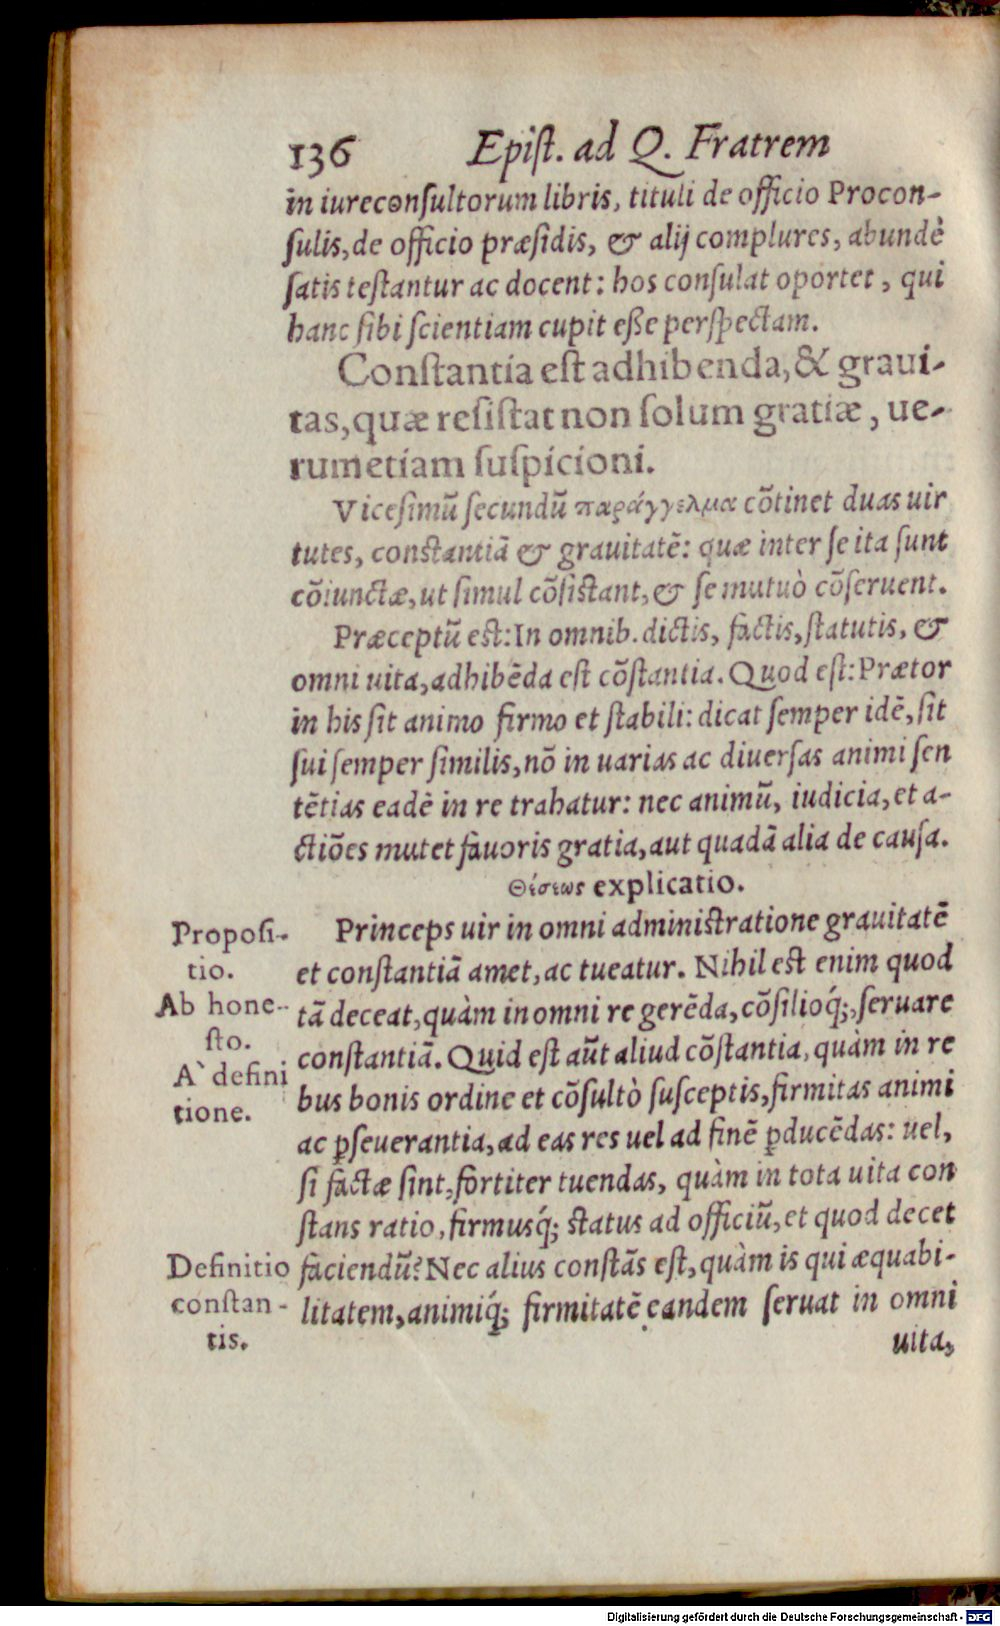 136 Epiſt. ad Q. Fratrem
in iureconſultorum libris, tituli de officio Procon-
ſulis, de officio præſidis, & alij complures, abundè
ſatis teſtantur ac docent: hos conſulat oportet, qui
hanc ſibi ſcientiam cupit eſſe perſpectam.
Conſtantia eſt adhibenda, & graui-
tas, quæ reſiſtat non ſolum gratiæ, ue-
rumetiam ſuſpicioni.
Viceſimũ ſecundũ παράγγελμα cõtinet duas uir
tutes, conſtantiã & grauitatẽ: quæ inter ſe ita ſunt
cõiunctæ, ut ſimul cõſiſtant, & ſe mutuò cõſeruent.
Præceptũ eſt: In omnib. dictis, factis, ſtatutis, &
omni uita, adhibẽda eſt cõſtantia. Quod eſt: Prætor
in his ſit animo firmo et ſtabili: dicat ſemper idẽ, ſit
ſui ſemper ſimilis, nõ in uarias ac diuerſas animi ſen
tẽtias eadẽ in re trahatur: nec animũ, iudicia, et a-
ctiões mutet fauoris gratia, aut quadã alia de cauſa.
Θέσεως explicatio.
Propoſi-
tio.
Ab hone-
ſto.
A` defini
tione.
Princeps uir in omni adminiſtratione grauitatẽ
et conſtantiã amet, ac tueatur. Nihil eſt enim quod
tã deceat, quàm in omni re gerẽda, cõſilioq́;, ſeruare
conſtantiã. Quid eſt aũt aliud cõſtantia, quàm in re
bus bonis ordine et cõſultò ſuſceptis, firmitas animi
ac ꝑſeuerantia, ad eas res uel ad finẽ ꝑducẽdas: uel,
ſi factæ ſint, fortiter tuendas, quàm in tota uita con
ſtans ratio, firmusq́; ſtatus ad officiũ, et quod decet
Definitio
conſtan-
tis.
faciendũ? Nec alius conſtãs eſt, quàm is qui æquabi-
litatem, animiq́; firmitatẽ eandem ſeruat in omni
uita,
Digitalisierung gefördert durch die Deutsche Forschungsgemeinschaft - DFG